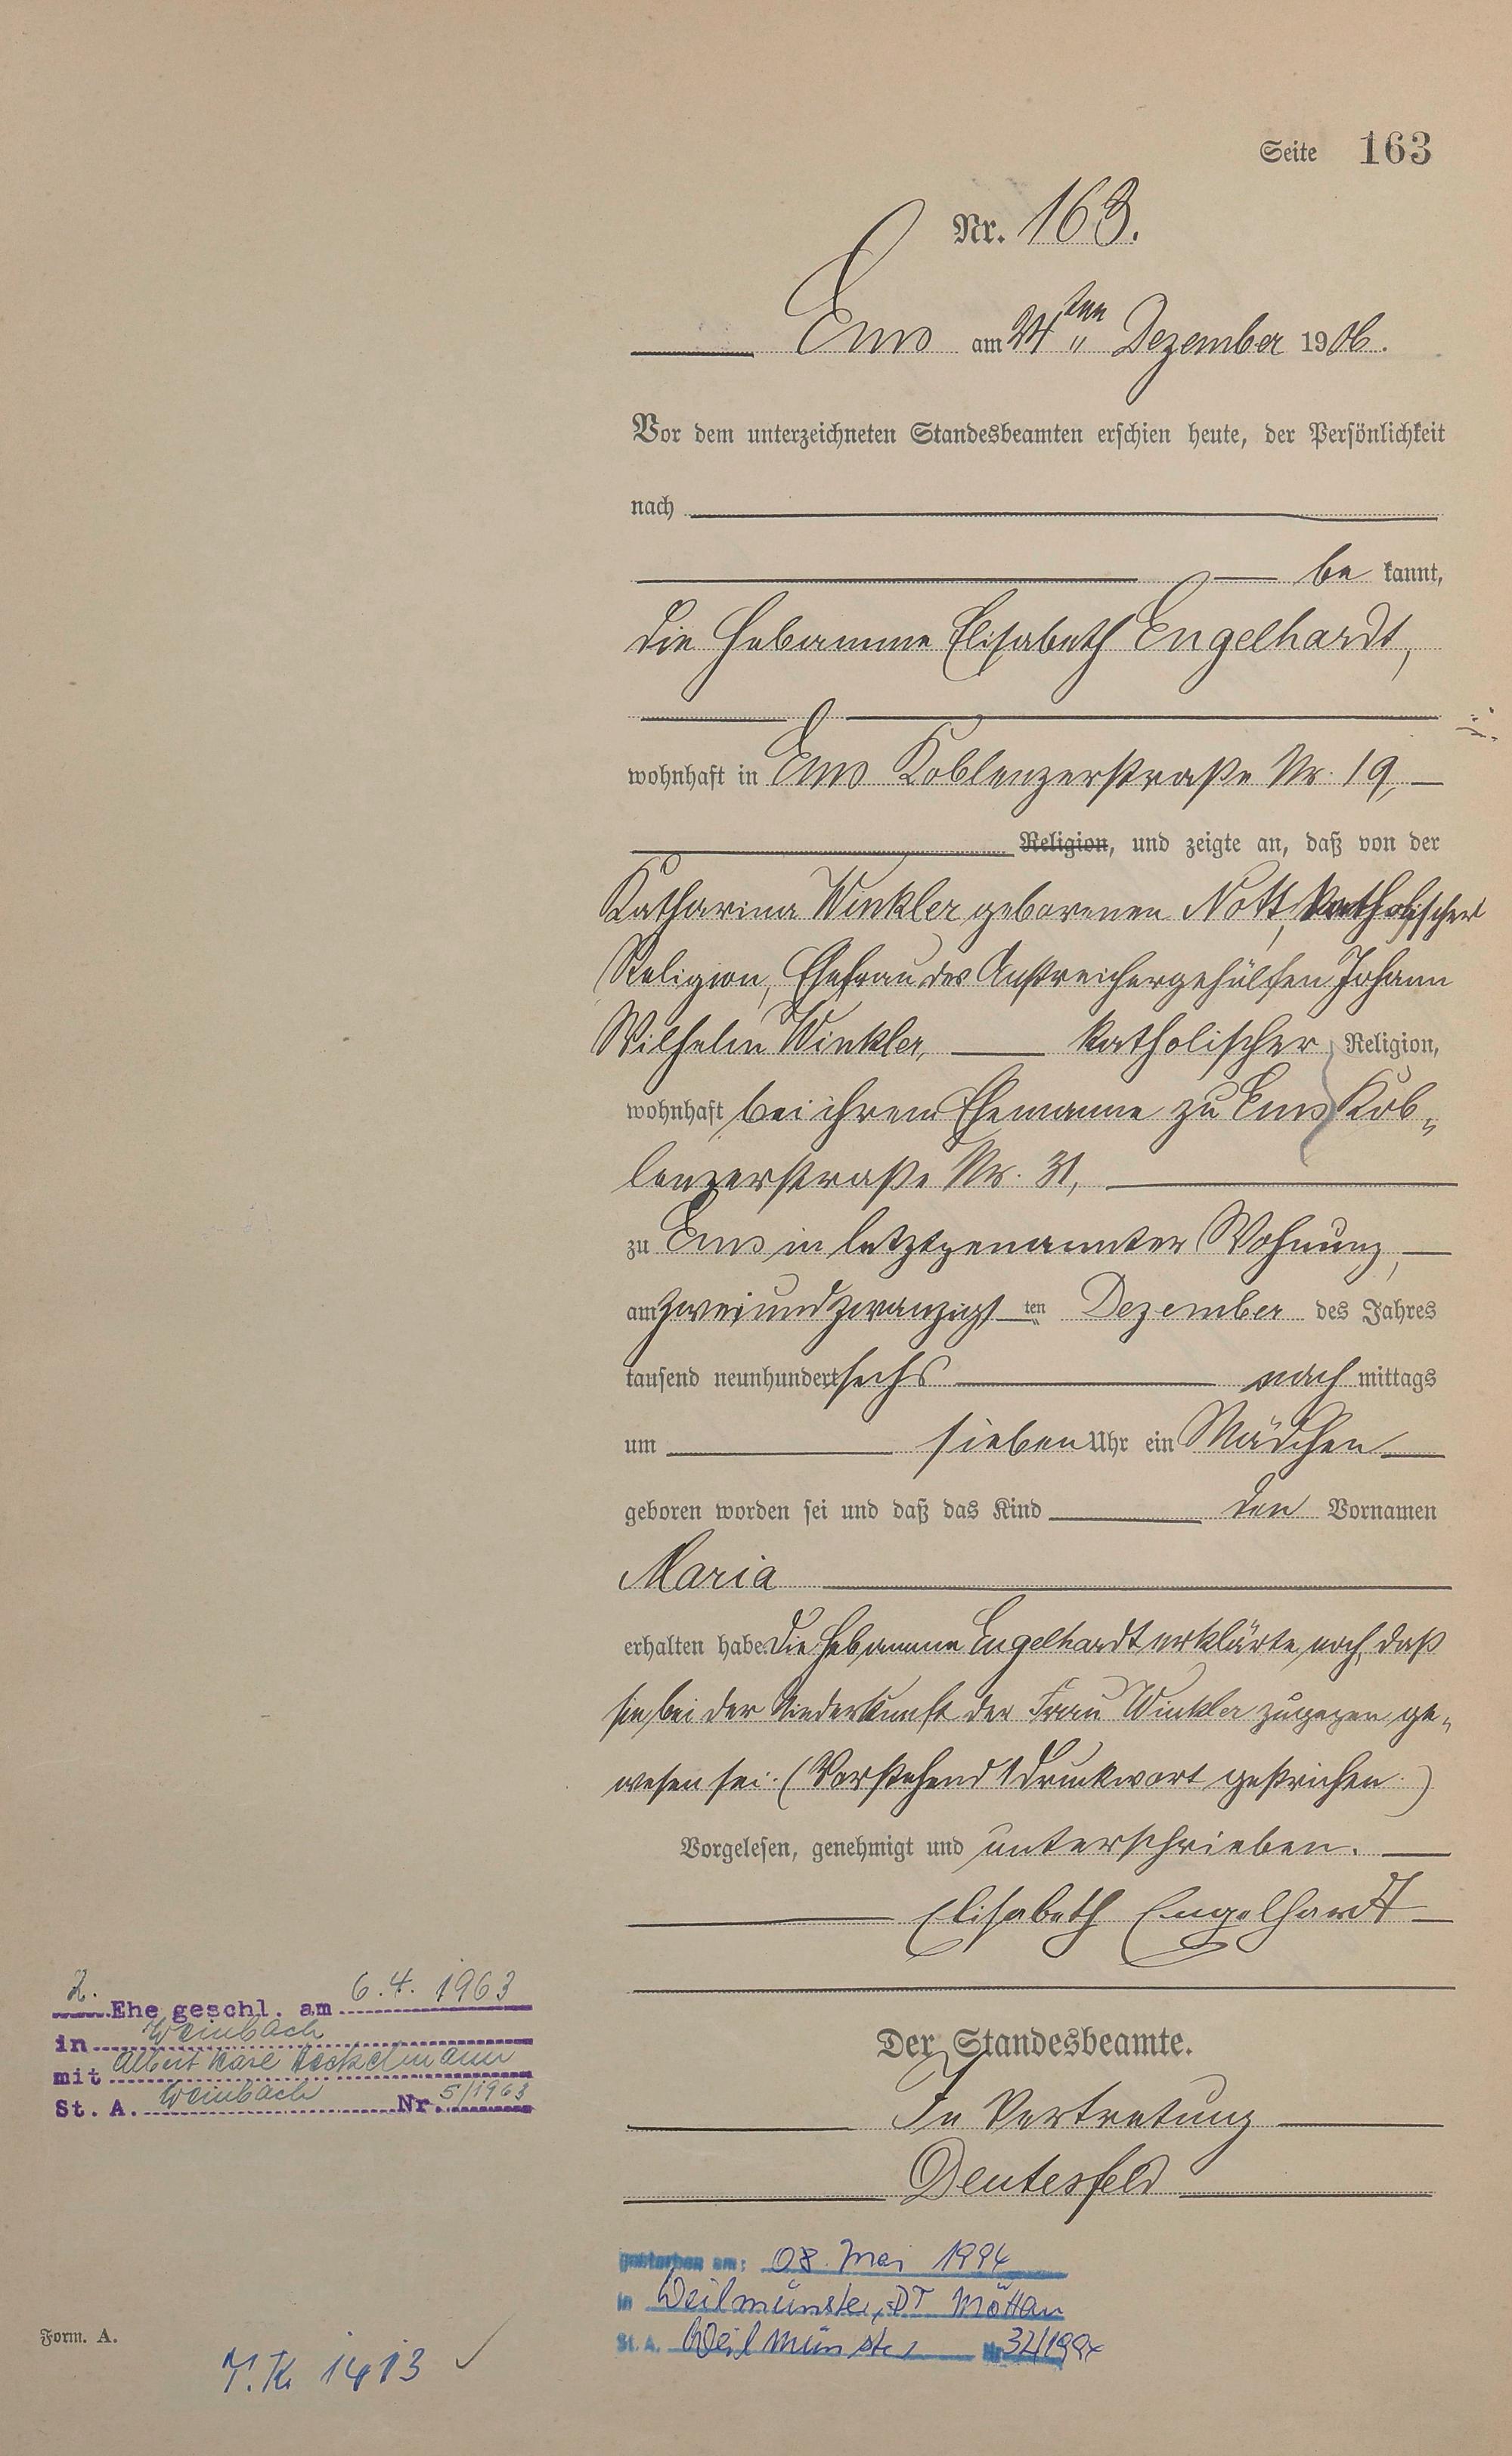 Seite 163
Nr. 163.
Ems am 24ten Dezember 1906.
Vor dem unterzeichneten Standesbeamten erschien heute, der Persönlichkeit
nach
be kannt,
die Hebamme Elisabeth Engelhardt,
wohnhaft in Ems Koblenzerstraße Nr. 19,
Religion, und zeigte an, daß von der
Katharina Winkler geborenen Nott, katholischer
Religion, Ehefrau des Anstreichergehülfen Johann
Wilhelm Winkler, katholischer Religion,
wohnhaft bei ihrem Ehemanne zu Ems Kob-
lenzerstraße Nr. 31,
zu Ems in letztgenannter Wohnung,
am zweiundzwanzigsten Dezember des Jahres
tausend neunhundert sechs nach mittags
um sieben Uhr ein Mädchen
geboren worden sei und daß das Kind den Vornamen
Maria
erhalten habe. Die Hebamme Engelhardt erklärte noch, daß
sie bei der Niederkunft der Frau Winkler zugegen ge-
wesen sei. (Vorstehend 1 Druckwort gestrichen.)
Vorgelesen, genehmigt und unterschrieben.
Elisabeth Engelhardt
Der Standesbeamte.
In Vertretung
Deutesfeld
2. Ehe geschl. am 6.4. 1963
in Weinbach
mit Albert Karl
St. A. Weinbach Nr. 5/1963
gestorben am: 08. Mai 1994
in Weilmünster, OT Möttau
St. A. Weilmünster Nr. 32/1994
Form. A.
T.K. 1413 ✓